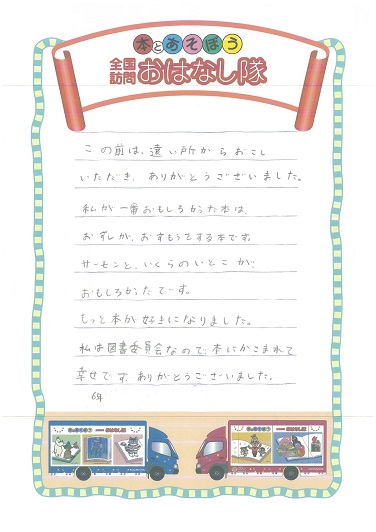 本とあそぼう
全国訪問おはなし隊
この前は、遠い所からおこし
いただき、ありがとうございました。
私が一番おもしろかった本は、
おすしが、おすもうをする本です。
サーモンと、いくらのいとこが、
おもしろかったでです。
もっと本が好きになりました。
私は図書委員会なので本にかこまれて
幸せです。ありがとうございました。
6年